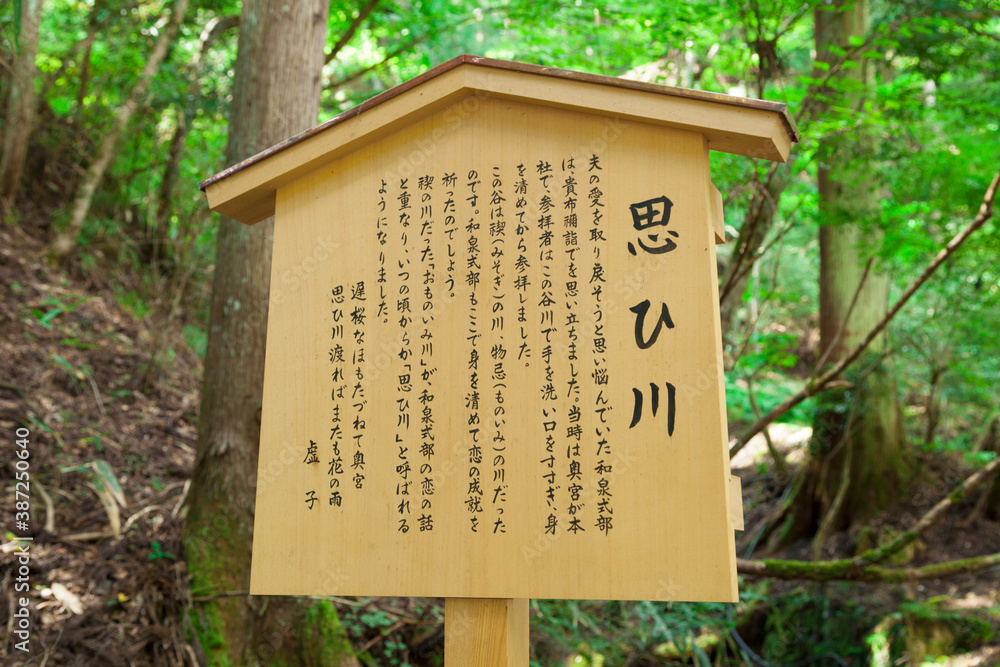 思ひ川
夫の愛を取り戻そうと思い悩んでいた和泉式部
は、貴布禰詣でを思い立ちました。当時は奥宮が本
社で、参拝者はこの谷川で手を洗い口をすすぎ、身
を清めてから参拝しました。
この谷は禊(みそぎ)の川、物忌(ものいみ)の川だった
のです。和泉式部もここで身を清めて恋の成就を
祈ったのでしょう。
禊の川だった「おものいみ川」が、和泉式部の恋の話
と重なり、いつの頃からか「思ひ川」と呼ばれる
ようになりました。
遅桜なほもたづねて奥宮
思ひ川渡ればまたも花の雨
虚子
Adobe Stock | #387250640